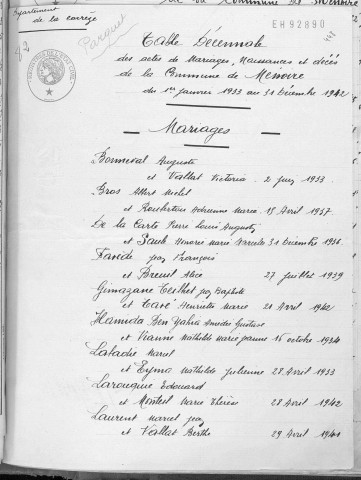 Département
de la Corrèze
EH92890
Parquet
82
Table Décennale
des actes de Mariages, Naissances et décès
de la Commune de Ménoire
du 1er janvier 1933 au 31 Décembre 1942
Mariages
Bonneval Auguste
et Vallat Victoria 2 juin 1933
Bros Albert Michel
et Roubertou Adrienne Marie 15 Avril 1937
De la Carte Pierre Louis Auguste
et Saule Honorée Marie Marcelle 31 Décembre 1936
Faride François
et Breuil Alice 27 juillet 1939
Gimazane Teilhet Baptiste
et Taré Henriette Marie 21 Avril 1942
Hamida Ben Yahia Amédée Gustave
et Vianne Mathilde Marie jeanne 15 octobre 1934
Labadie Marcel
et Eyma Mathilde Julienne 28 Avril 1933
Larouquie Edouard
et Monteil Marie Thérèse 28 Avril 1942
Laurent Marcel
et Vallat Berthe 29 Avril 1941